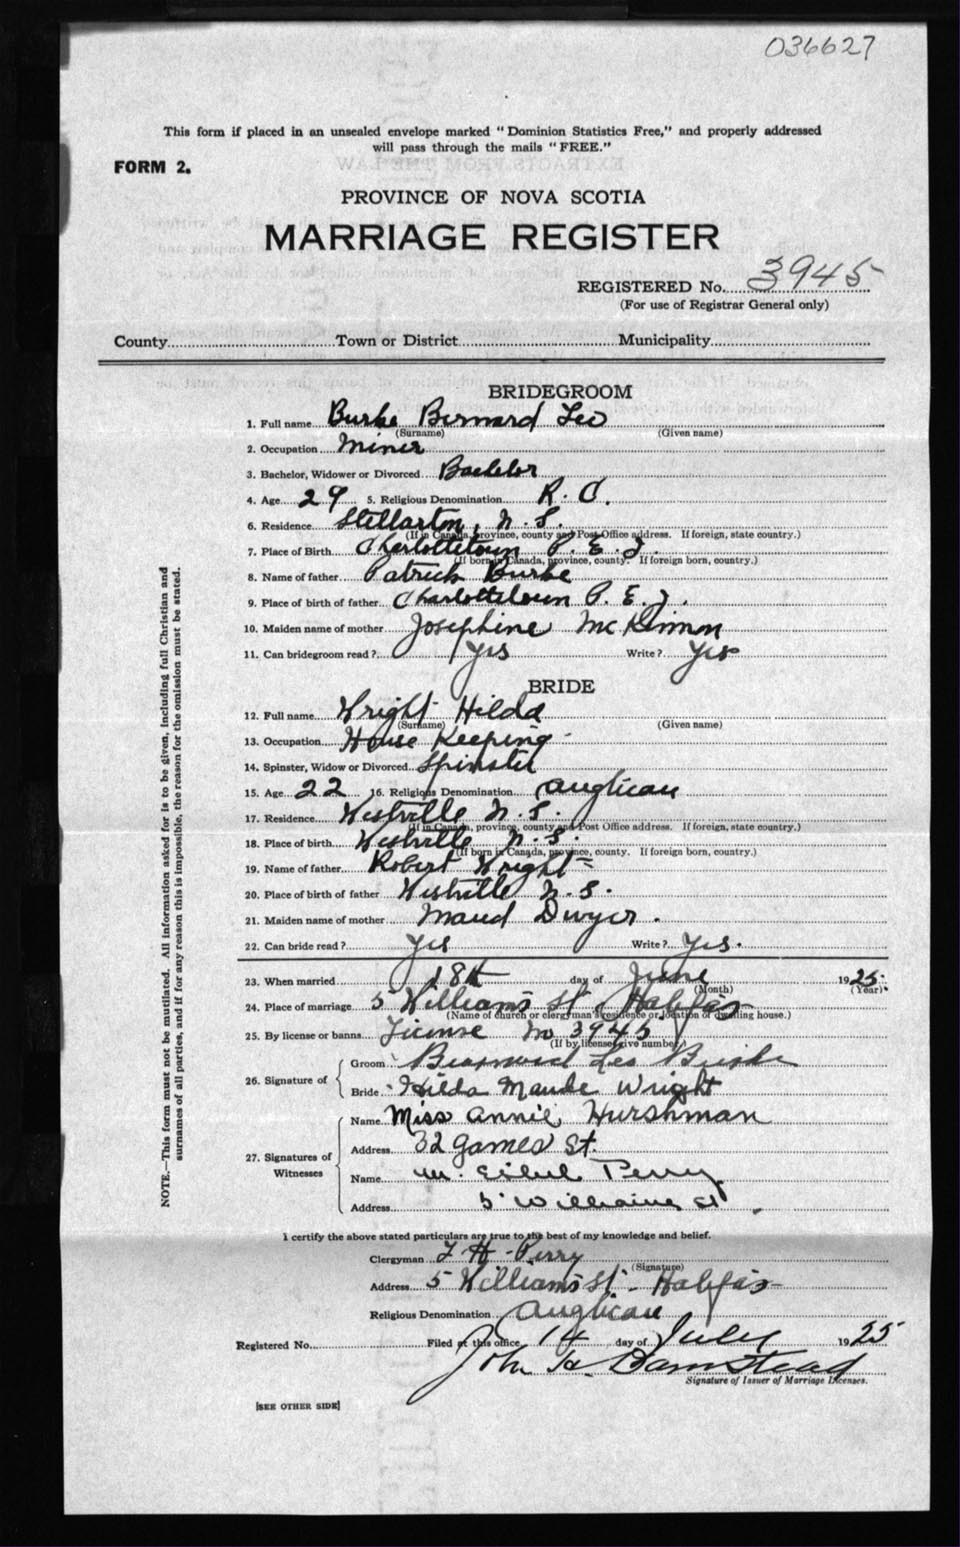 036627
This form if placed in an unsealed envelope marked "Dominion Statistics Free," and properly addressed
will pass through the mails "FREE."
FORM 2.
PROVINCE OF NOVA SCOTIA
MARRIAGE REGISTER
REGISTERED No. 3945
(For use of Registrar General only)
County Town or District Municipality
BRIDEGROOM
1. Full name Burke Bernard Leo
(Surname) (Given name)
2. Occupation Miner
3. Bachelor, Widower or Divorced Bachelor
4. Age 29 5. Religious Denomination R. C.
6. Residence Stellarton, N. S.
(If in Canada, province, county and Post Office address. If foreign, state country.)
7. Place of Birth Charlottetown P. E. I.
(If born in Canada, province, county. If foreign born, country.)
8. Name of father Patrick Burke
9. Place of birth of father Charlottetown P. E. I.
10. Maiden name of mother Josephine McKinnon
11. Can bridegroom read? Yes Write? Yes
BRIDE
12. Full name Wright Hilda
(Surname) (Given name)
13. Occupation House Keeping
14. Spinster, Widow or Divorced Spinster
15. Age 22 16. Religious Denomination Anglican
17. Residence Westville N. S.
(If in Canada, province, county and Post Office address. If foreign, state country.)
18. Place of birth Westville N. S.
(If born in Canada, province, county. If foreign born, country.)
19. Name of father Robert Wright
20. Place of birth of father Westville N. S.
21. Maiden name of mother Maud Dwyer.
22. Can bride read? Yes Write? Yes.
23. When married 18th day of June 1925.
(Month) (Year)
24. Place of marriage 5 Williams St. Halifax
(Name of church or clergyman's residence or location of dwelling house.)
25. By license or banns License No 3945
(If by license give number)
26. Signature of Groom Bearnard Leo Burke
Bride Hilda Maude Wright
27. Signatures of Witnesses Name Miss Annie Hurshman
Address 32 Games St.
Name M. Ethel Perry
Address 5 Williams St.
I certify the above stated particulars are true to the best of my knowledge and belief.
Clergyman H. Perry
(Signature)
Address 5 Williams St. Halifax
Religious Denomination Anglican
Registered No. Filed at this office 14 day of July 1925
John H. Barnstead
Signature of Issuer of Marriage Licenses.
[SEE OTHER SIDE]
NOTE.—This form must not be mutilated. All information asked for is to be given, including full Christian and
surnames of all parties, and if for any reason this is impossible, the reason for the omission must be stated.